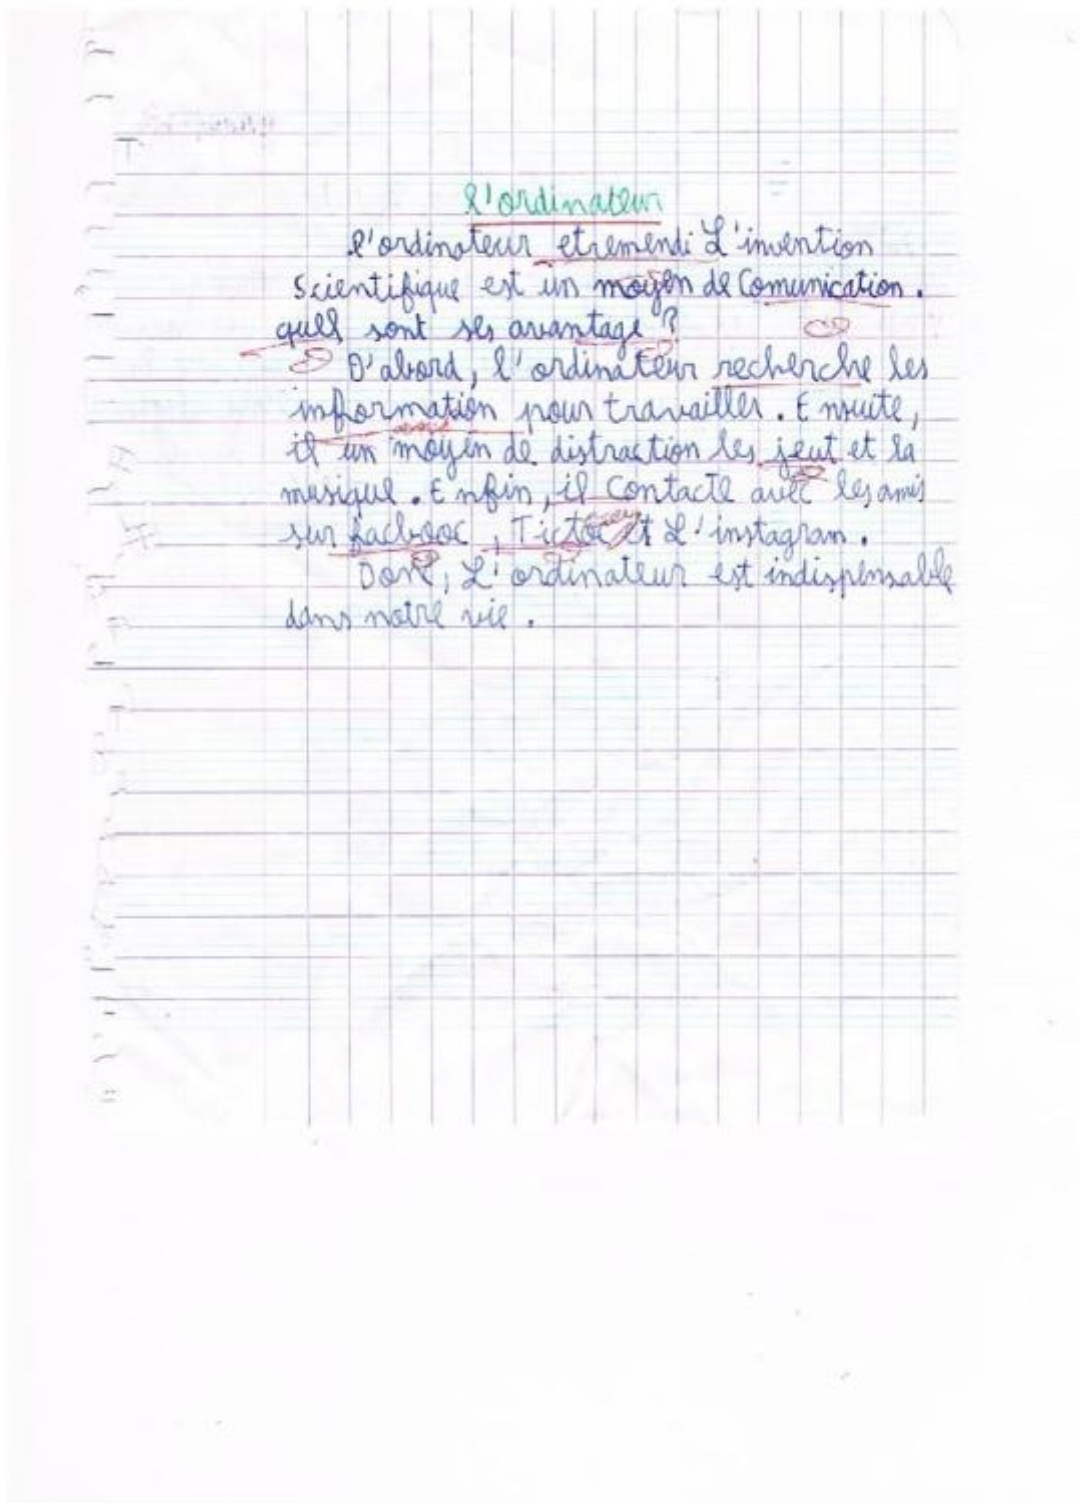 l'ordinateur
l'ordinateur etremendi L'invention
Scientifique est un moyen de Comunication.
quell sont ses avantage ?
D'abord, l'ordinateur recherche les
information pour travailler. Ensuite,
il un moyen de distraction les jeut et la
musique. Enfin, il Contacte avec les amis
sur facbooc, Tictoc et L'instagram.
Donc, L'ordinateur est indispensable
dans notre vie.